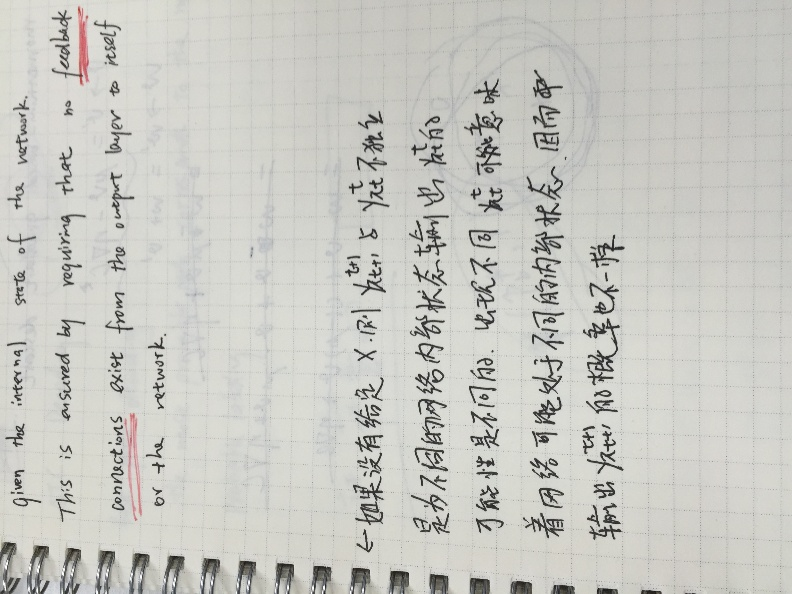 given the internal state of the network.
This is ensured by requiring that no feedback
connections exist from the output layer to itself
or the network.
← 如果没有给定 X.则 y_{π_{t+1}}^{t+1} 与 y_{π_t}^{t} 不独立
是为不同的网络内部状态输出 y_{π_t}^{t} 的
可能性是不同的. 出现不同 y_{π_t}^{t} 可能意味
着网络可能处于不同的内部状态. 因而
输出 y_{π_{t+1}}^{t+1} 的概率也不一样